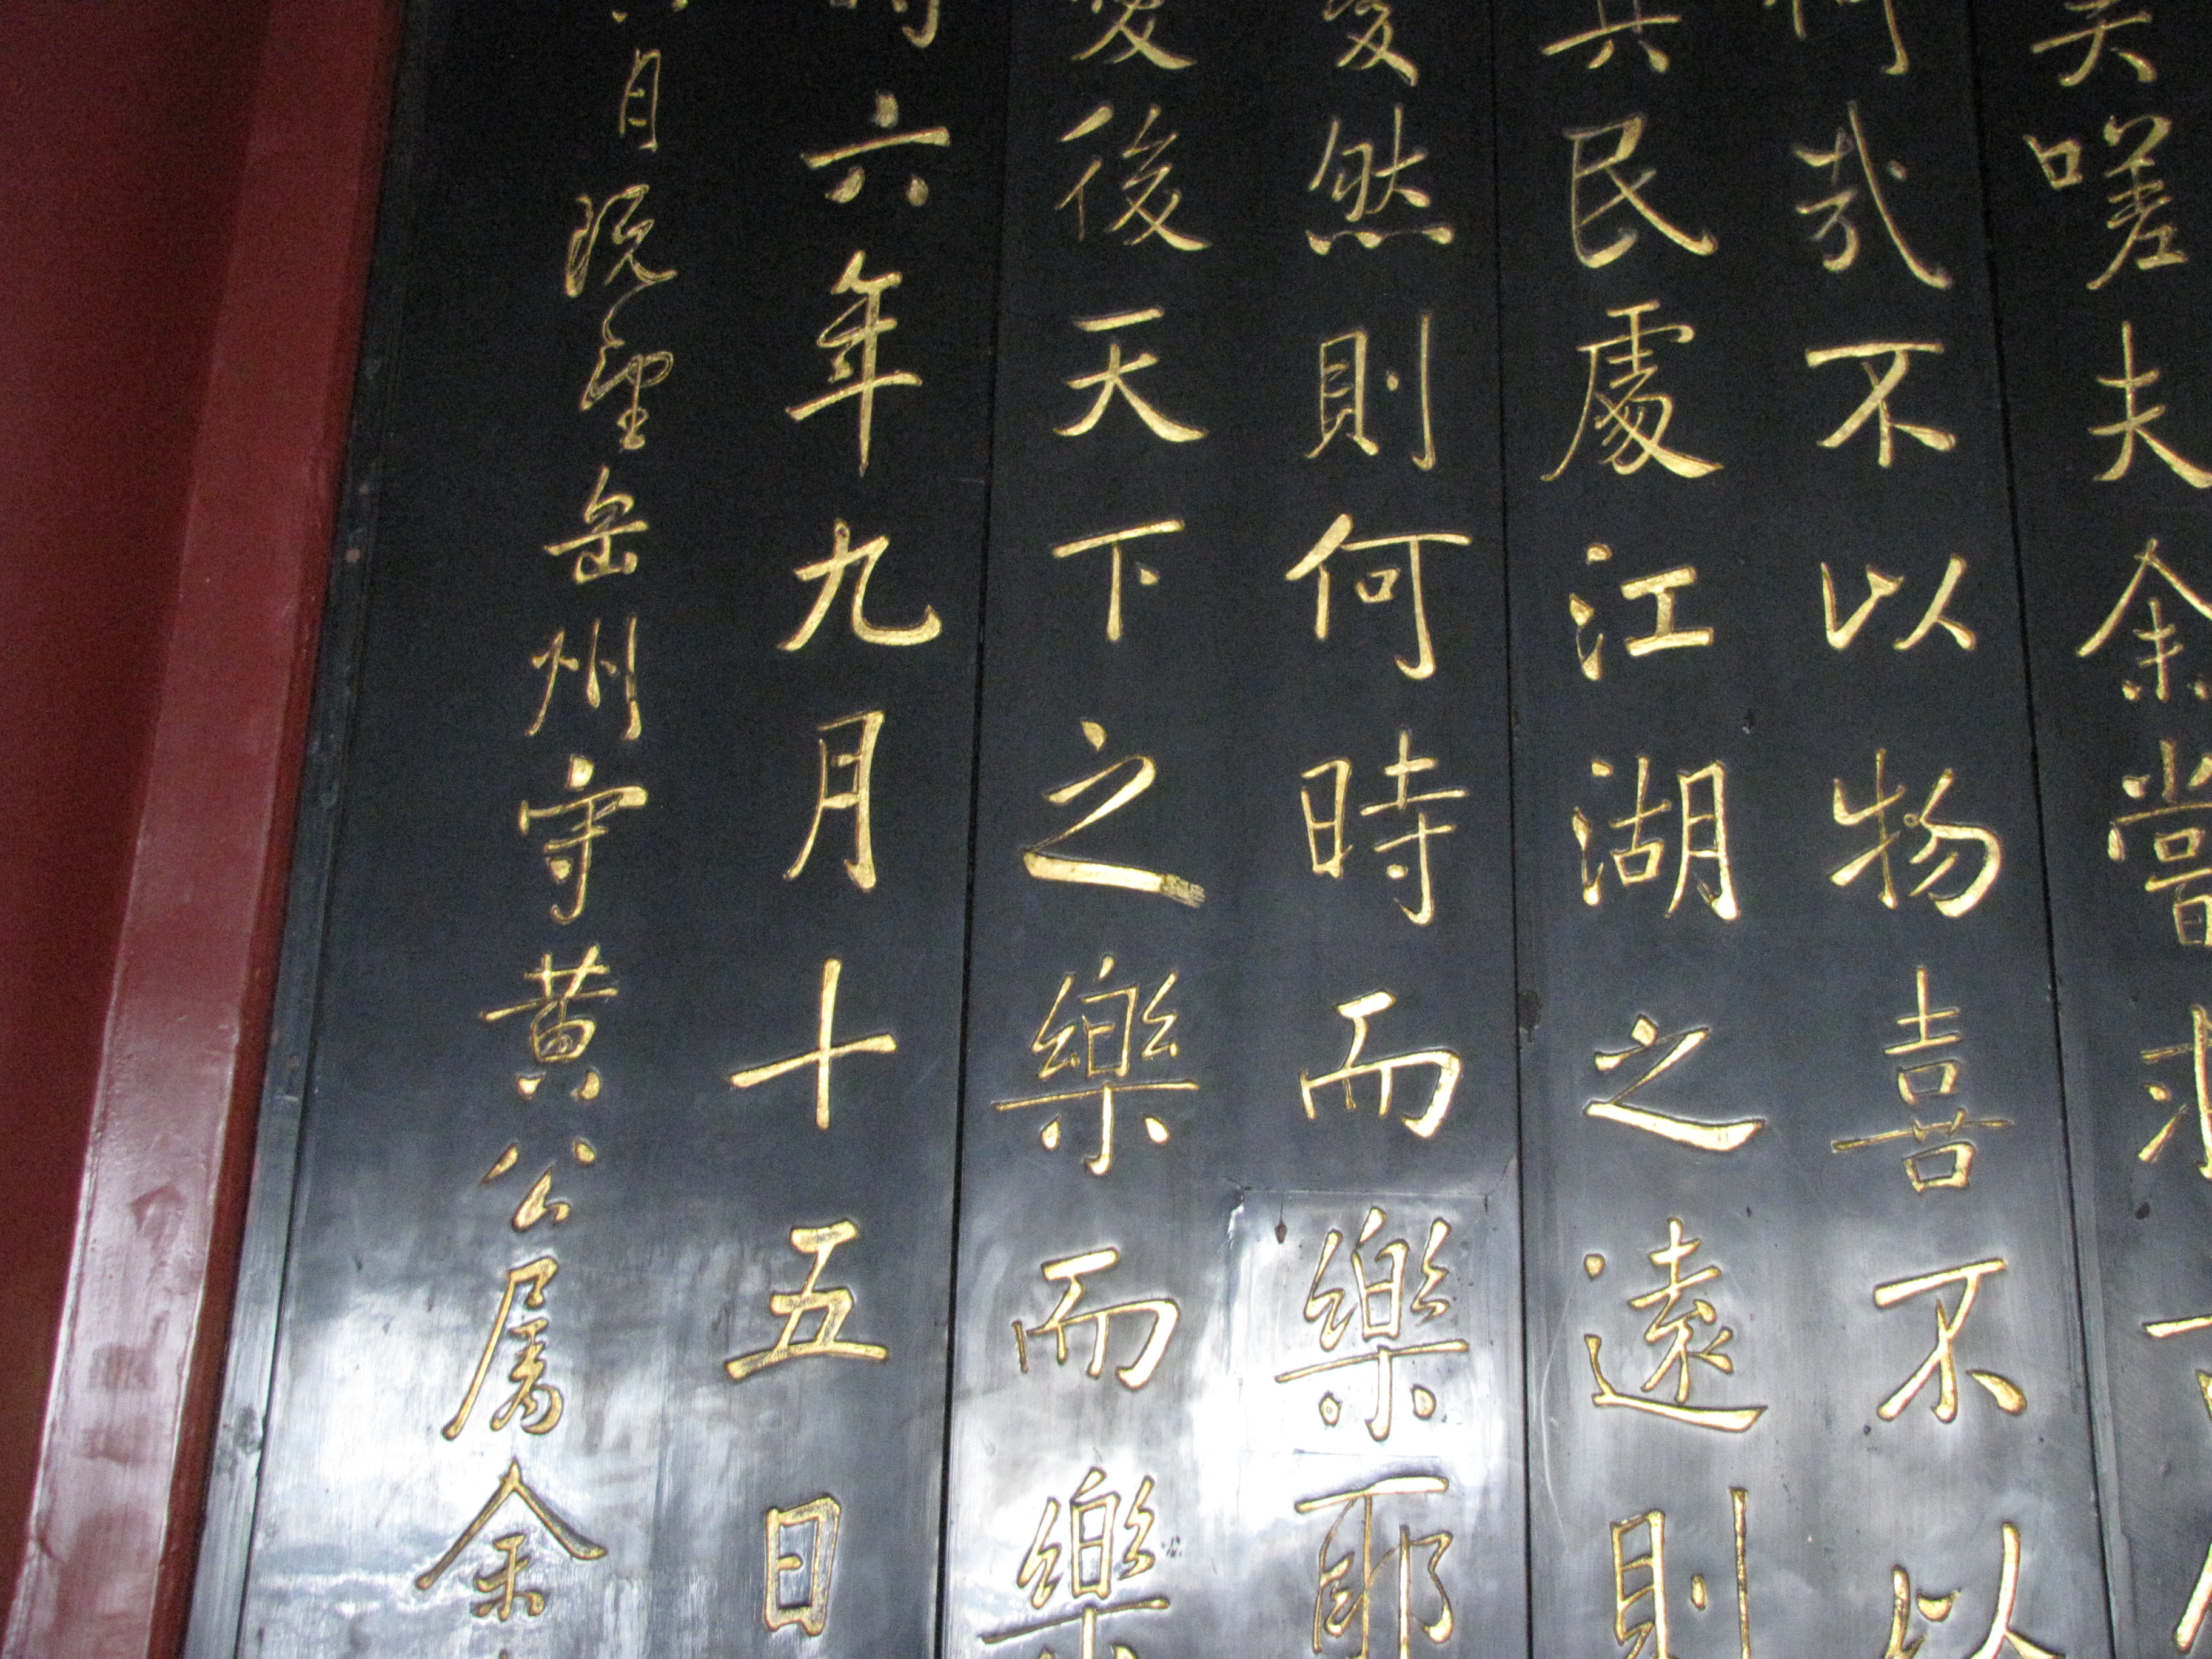 矣嗟夫余嘗求
何哉不以物喜不以
其民處江湖之遠則
憂然則何時而樂耶
憂後天下之樂而樂
時六年九月十五日
月既望岳州守黄公属余